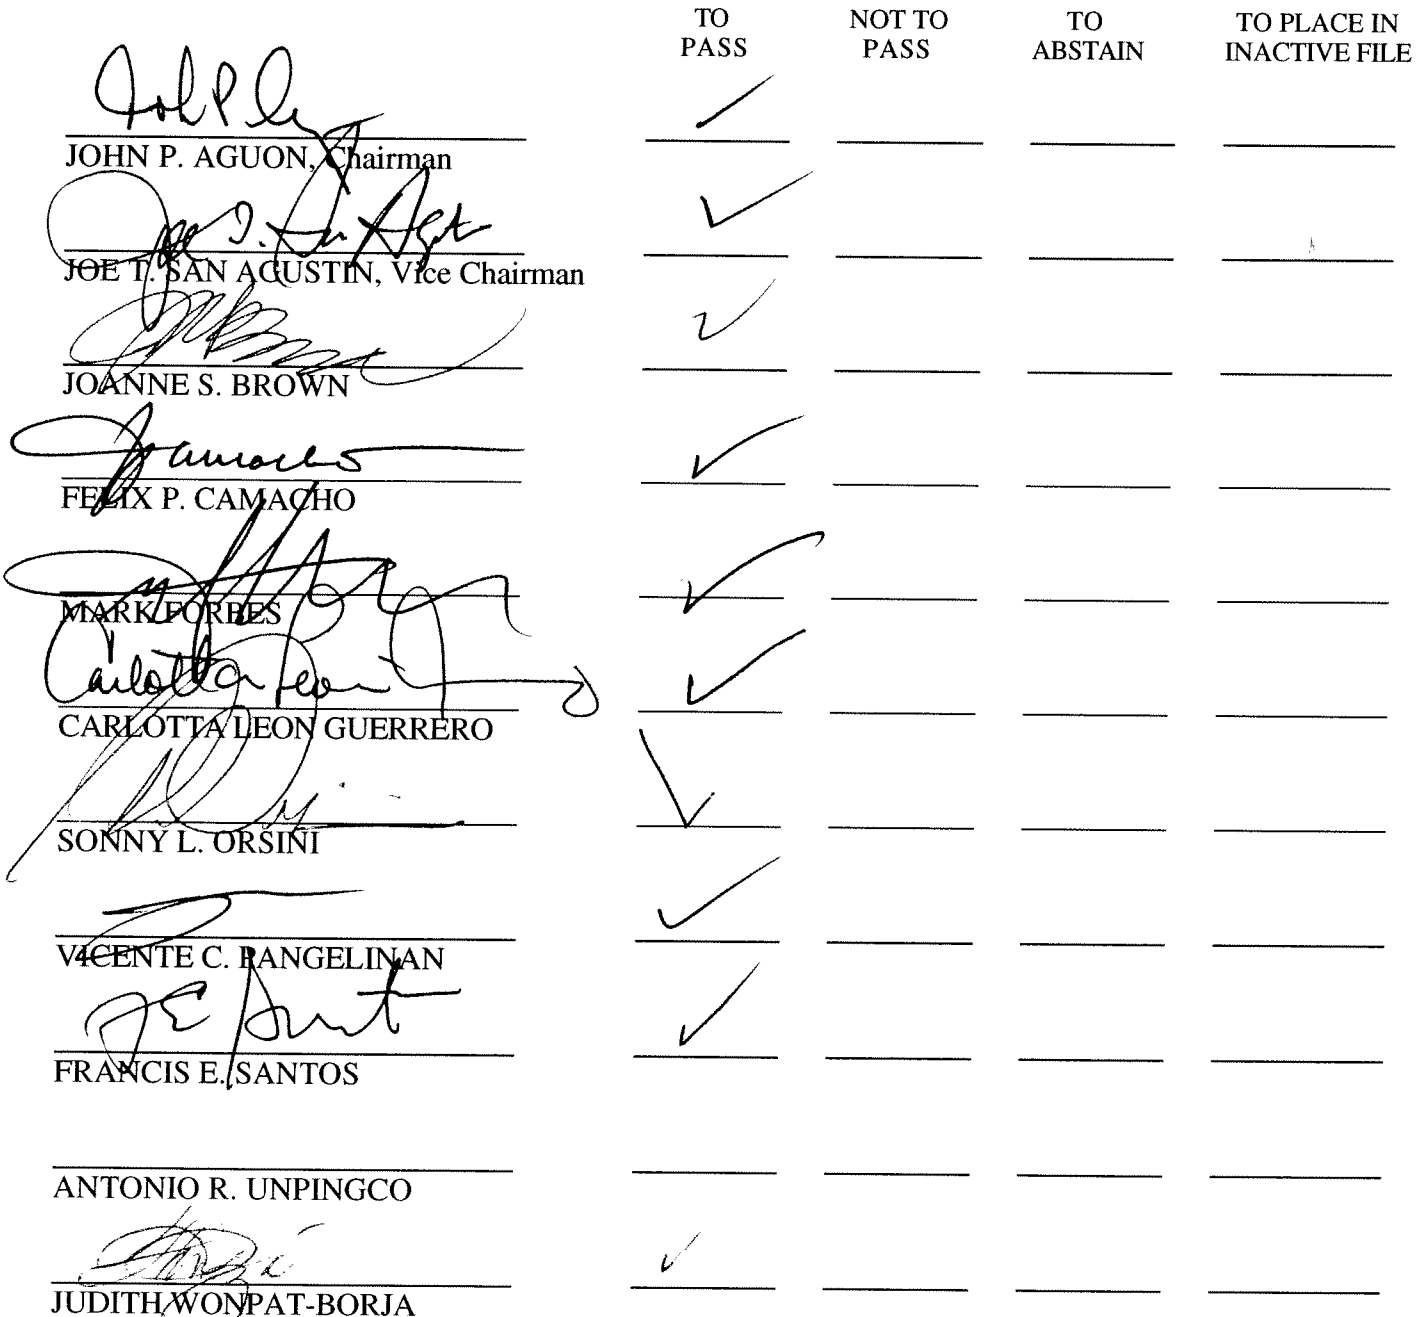 TO PASS NOT TO PASS TO ABSTAIN TO PLACE IN INACTIVE FILE
John P. Aguon
JOHN P. AGUON, Chairman
Joe T. San Agustin
JOE T. SAN AGUSTIN, Vice Chairman
JOANNE S. BROWN
Camacho
FELIX P. CAMACHO
MARK FORBES
Carlotta Leon
CARLOTTA LEON GUERRERO
SONNY L. ORSINI
VICENTE C. PANGELINAN
FE Santos
FRANCIS E. SANTOS
ANTONIO R. UNPINGCO
JUDITH WONPAT-BORJA